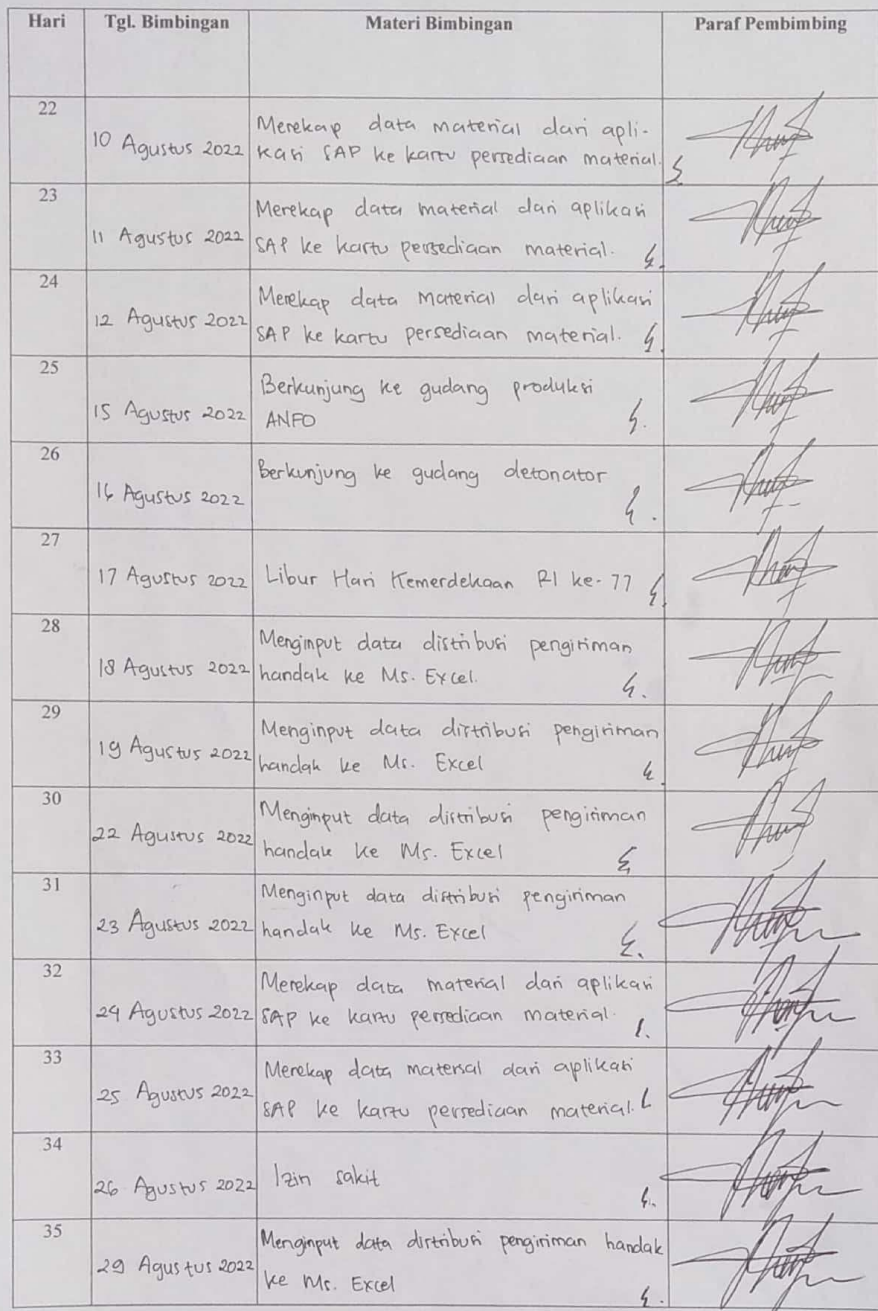 Hari Tgl. Bimbingan Materi Bimbingan Paraf Pembimbing
22
10 Agustus 2022 Merekap data material dari apli-
kasi SAP ke kartu persediaan material.
23
11 Agustus 2022 Merekap data material dari aplikasi
SAP ke kartu persediaan material.
24
12 Agustus 2022 Merekap data material dari aplikasi
SAP ke kartu persediaan material.
25
15 Agustus 2022 Berkunjung ke gudang produksi
ANFO
26
16 Agustus 2022 Berkunjung ke gudang detonator
27
17 Agustus 2022 Libur Hari Kemerdekaan RI ke-77
28
18 Agustus 2022 Menginput data distribusi pengiriman
handak ke Ms. Excel.
29
19 Agustus 2022 Menginput data distribusi pengiriman
handak ke Ms. Excel
30
22 Agustus 2022 Menginput data distribusi pengiriman
handak ke Ms. Excel
31
23 Agustus 2022 Menginput data distribusi pengiriman
handak ke Ms. Excel
32
24 Agustus 2022 Merekap data material dari aplikasi
SAP ke kartu persediaan material.
33
25 Agustus 2022 Merekap data matersal dari aplikasi
SAP ke kartu persediaan material.
34
26 Agustus 2022 Izin sakit
35
29 Agustus 2022 Menginput data distribusi pengiriman handak
ke Ms. Excel